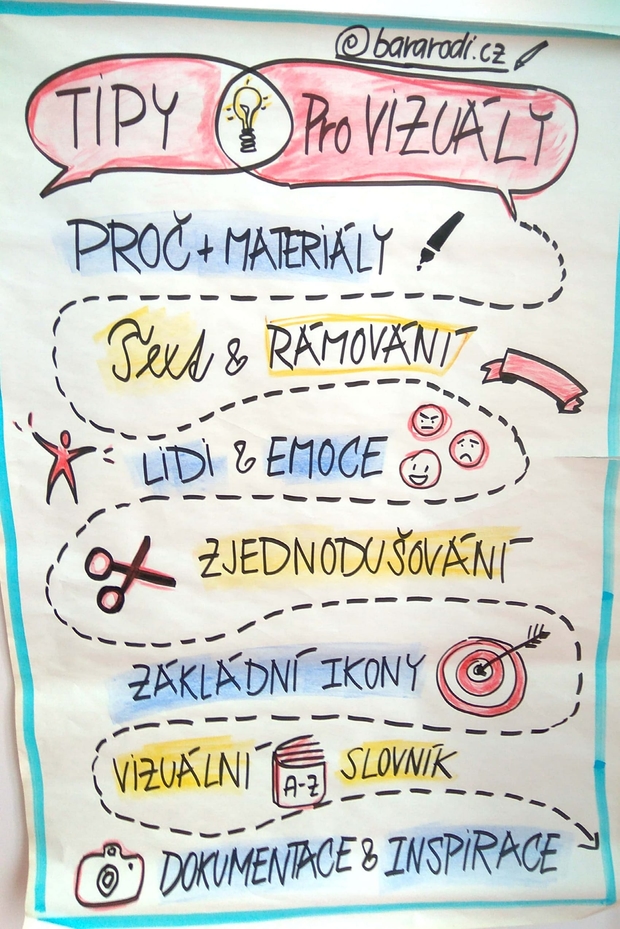 @bararodi.cz
TIPY Pro VIZUÁLY
PROČ + MATERIÁLY
Text & RÁMOVÁNÍ
LIDI & EMOCE
ZJEDNODUŠOVÁNÍ
ZÁKLÁDNÍ IKONY
VIZUÁLNÍ A-Z SLOVNÍK
DOKUMENTACE & INSPIRACE